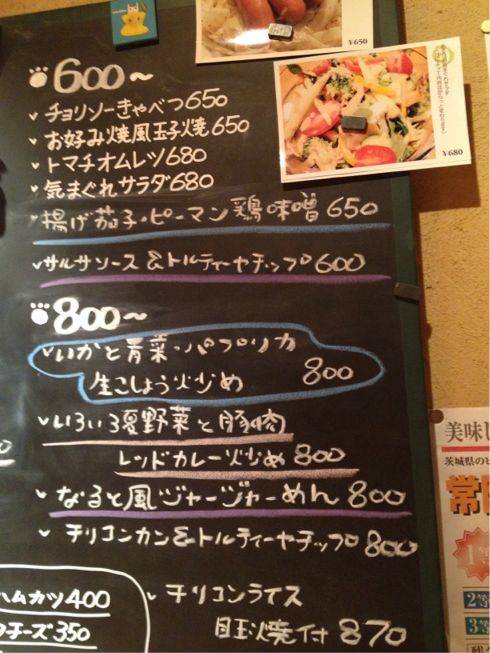 ¥650
600~
チョリソーきゃべつ650
お好み焼風玉子焼 650
トマチオムレツ680
気まぐれサラダ680
揚げ茄子・ピーマン鶏味噌650
サルサソース&トルティーヤチップ600
¥680
800~
いかと青菜・パプリカ
生こしょう火少め 800
いろいろ夏野菜と豚肉
レッドカレー火少め 800
なると風ジャージャーめん 800
チリコンカン&トルティーヤチップ 800
チリコンライス
目玉焼付 870
ハムカツ400
チーズ350
美味し
茨城県の
常
1等
2等
3等